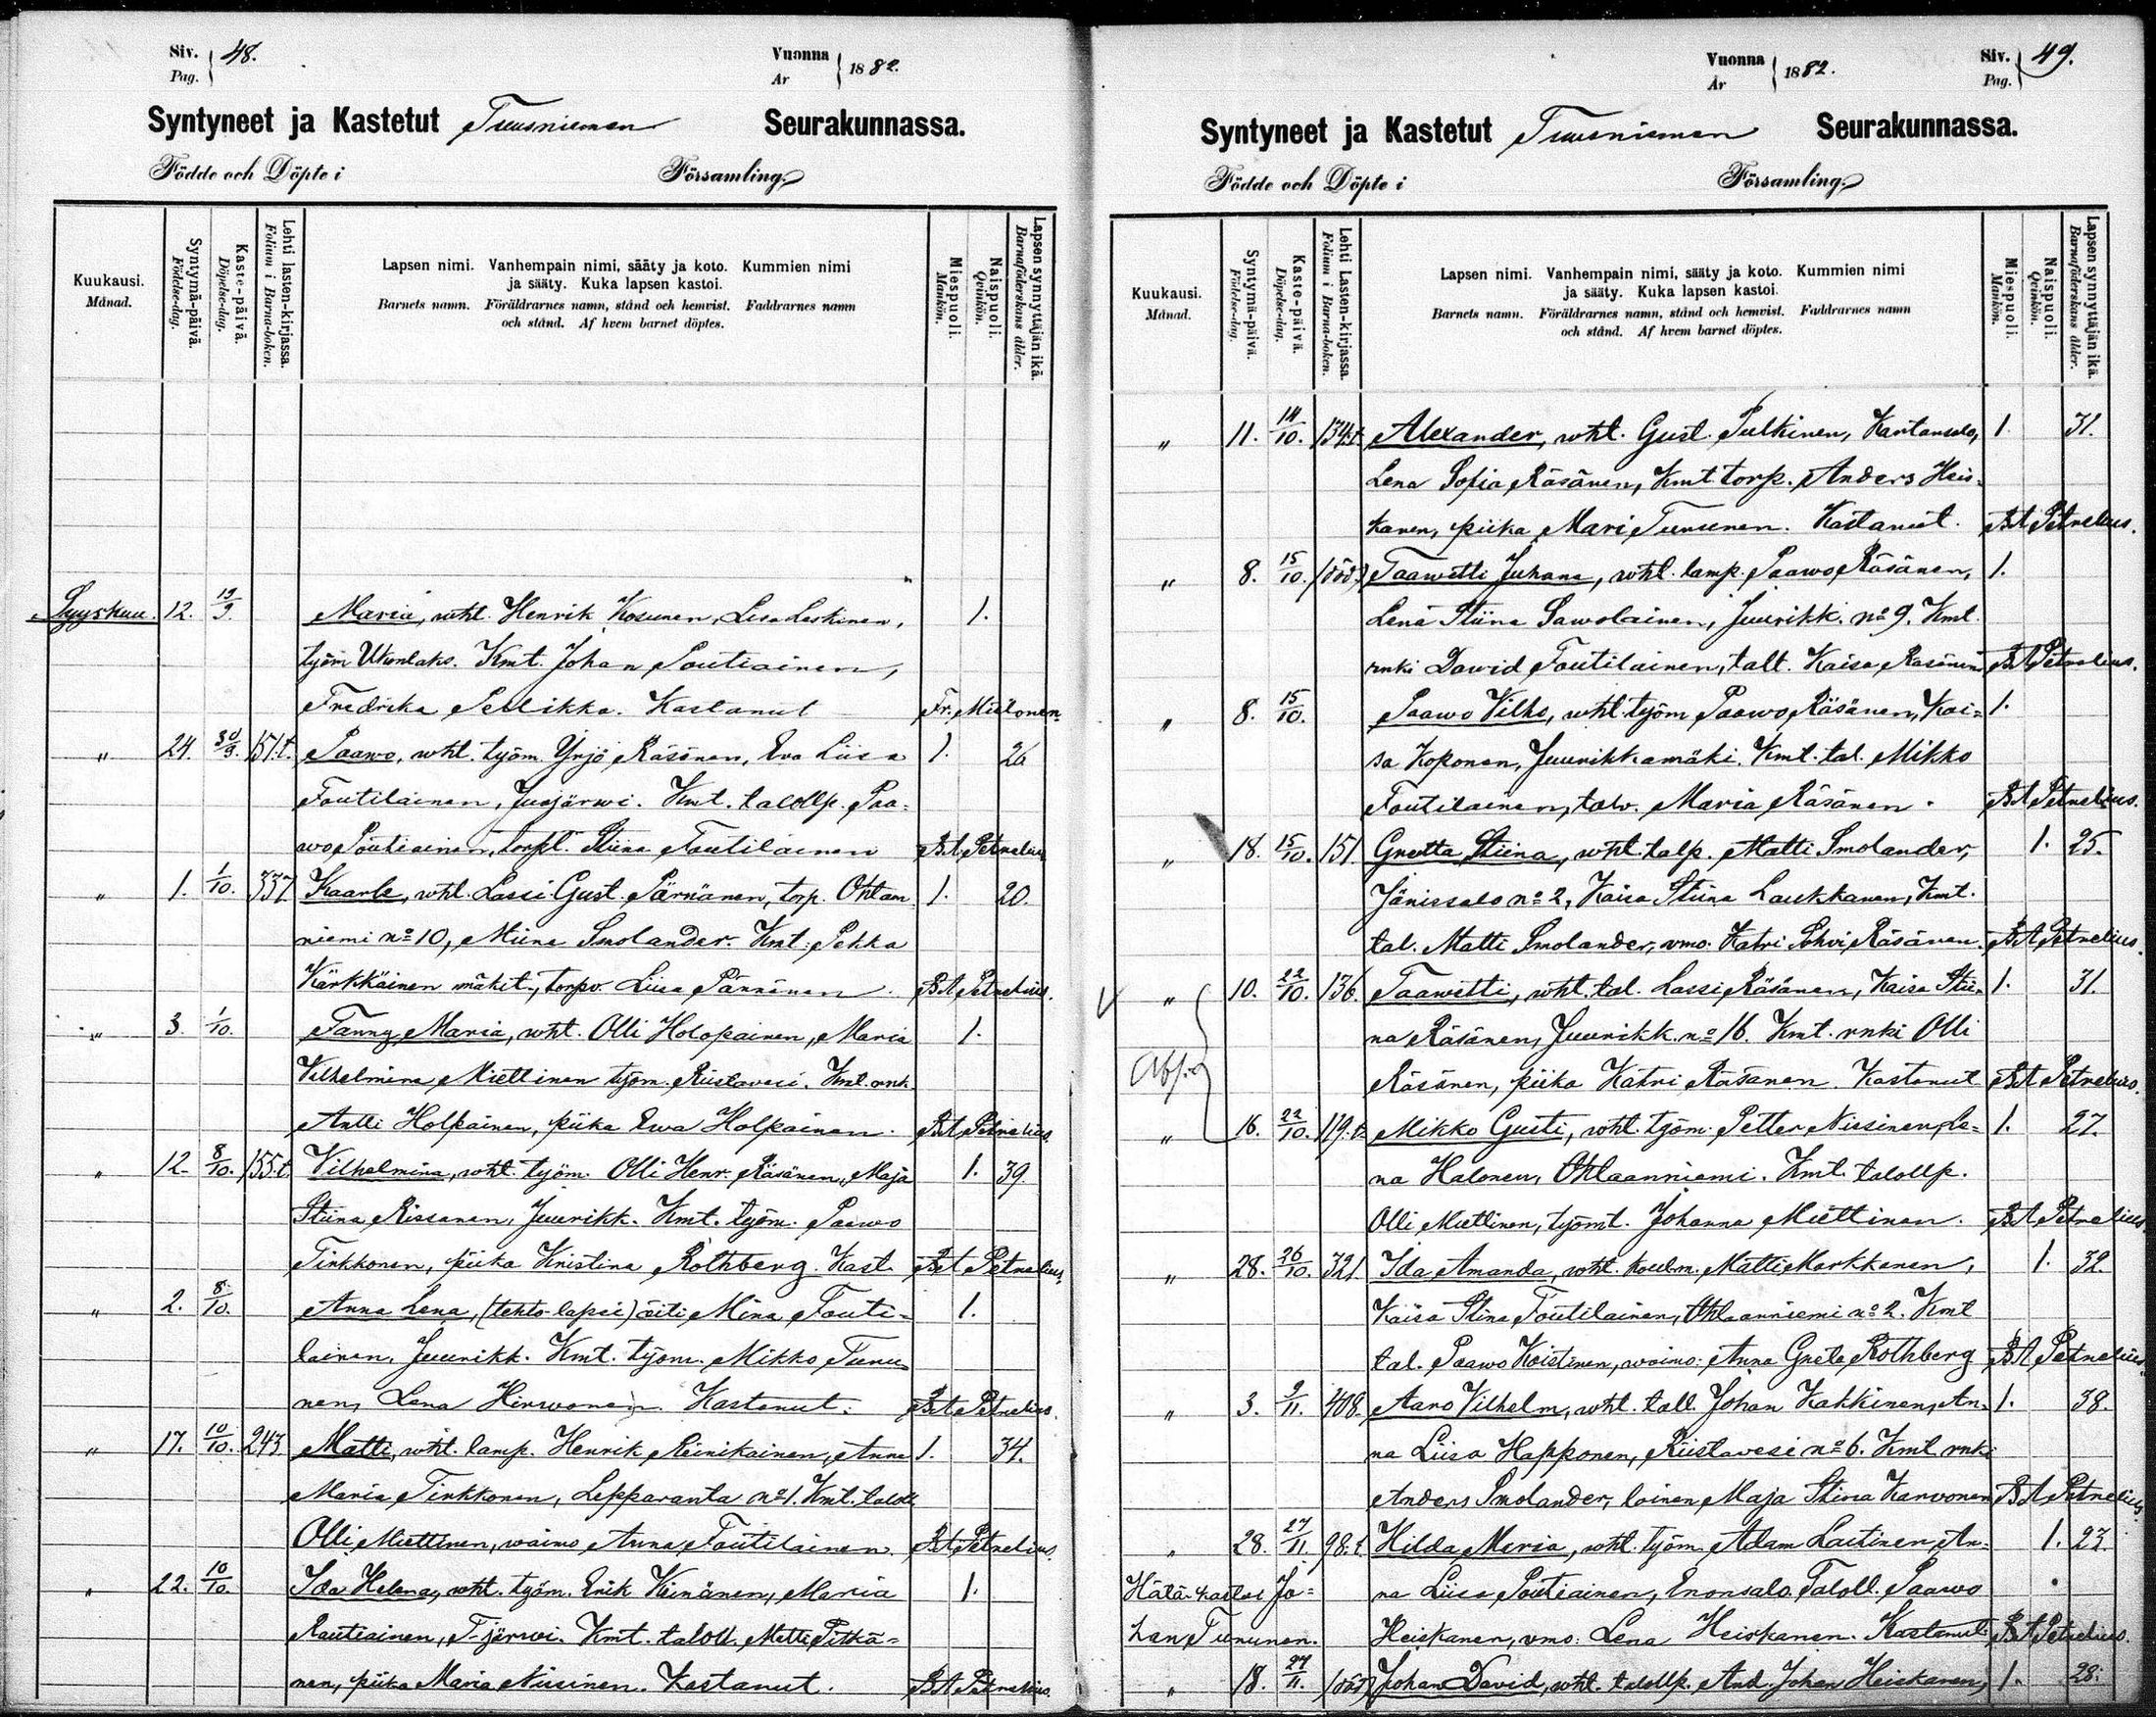 Siv. 48.
Pag.
Vuonna 1882.
År
Syntyneet ja Kastetut Tuusniemen Seurakunnassa.
Födde och Döpte i Församling.
Kuukausi.
Månad.
Syntymä-päivä.
Födelse-dag.
Kaste-päivä.
Döpelse-dag.
Lehti lasten-kirjassa.
Folium i Barna-boken.
Lapsen nimi. Vanhempain nimi, sääty ja koto. Kummien nimi
ja sääty. Kuka lapsen kastoi.
Barnets namn. Föräldrarnes namn, stånd och hemvist. Faddrarnes namn
och stånd. Af hvem barnet döptes.
Miespuoli.
Mankön.
Naispuoli.
Qvinkön.
Lapsen synnyttäjän ikä.
Barnaföderskans ålder.
Syyskuu. 12. 19/9. Maria, wht. Henrik Kosunen, Lisa Leskinen, 1.
työm Ukonlaks. Kmt. Johan Poutiainen,
Fredrika Kastanut Fr. Mistonen
" 24. 30/9. 151.t. Paawo, wht. työm. Yrjö Räsänen, Eva Liisa 1. 26
Toutilainen, Juojärwi. Kmt. talollp. Paa-
wo Poutiainen, torpt. Stiina Toutilainen B A Petrelius
" 1. 1/10. 337 Kaarle, wht. Lassi Gust. Pärnänen, torp. Ohtam 1. 20.
niemi no 10, Miina Smolander. Kmt. Pekka
Kärkkäinen mäkit., torpv. Liisa Pärnänen. B A Petrelius.
" 3. 1/10. Fanny Maria, wht. Olli Holopainen, Maria 1.
Vilhelmina Miettinen työm. Riistavesi. Kmt. rnk
Antti Holpainen, piika Ewa Holpainen. B A Petrelius
" 12. 8/10. 155.t. Vilhelmina, wht. työm. Olli Henr. Räsänen, Maja 1. 39.
Stiina Rissanen, Juurikk. Kmt. työm. Paawo
Tirkkonen, piika Kristina Rothberg. Kast. B A Petrelius.
" 2. 8/10. Anna Lena, (lehto-lapsi) äiti Mina Touti- 1.
lainen, Juurikk. Kmt. työm. Mikko Tunu
nen, Lena Hirwonen. Kastanut. B A Petrelius.
" 17. 10/10. 243 Matti, wht. lamp. Henrik Miinikainen, Anna 1. 34.
Maria Tirkkonen, Lepparanta no 1. Kmt. taloll
Olli Miettinen, waimo Anna Toutilainen. B A Petrelius.
" 22. 10/10. Ida Helena, wht. työm. Erik Keinänen, Maria 1.
Rautiainen, T-järwi. Kmt. taloll. Matti Pitkä-
nen, piika Maria Niisinen. Kastanut. B A Petrelius.
Vuonna 1882.
År
Siv. 49.
Pag.
Syntyneet ja Kastetut Tuusniemen Seurakunnassa.
Födde och Döpte i Församling.
Kuukausi.
Månad.
Syntymä-päivä.
Födelse-dag.
Kaste-päivä.
Döpelse-dag.
Lehti Lasten-kirjassa.
Folium i Barna-boken.
Lapsen nimi. Vanhempain nimi, sääty ja koto. Kummien nimi
ja sääty. Kuka lapsen kastoi.
Barnets namn. Föräldrarnes namn, stånd och hemvist. Faddrarnes namn
och stånd. Af hvem barnet döptes.
Miespuoli.
Mankön.
Naispuoli.
Qvinkön.
Lapsen synnyttäjän ikä.
Barnaföderskans ålder.
" 11. 14/10. 134.t. Alexander, wht. Gust. Pulkinen, Kartansalo, 1. 31.
Lena Sofia Räsänen, Kmt. torp. Anders Heis-
kanen, piika Mari Tununen. Kastanut. B A Petrelius.
" 8. 15/10. (död) Taawetti Juhana, wht. lamp. Paawo Räsänen, 1.
Lena Stiina Sawolainen, Juurikk. no 9. Kmt.
rnki Dawid Toutilainen, talt. Kaisa Räsänen B A Petrelius.
" 8. 15/10. Paawo Vilho, wht. työm Paawo Räsänen, Kai- 1.
sa Koponen, Juurikkamäki. Kmt. tal. Mikko
Toutilainen, talv. Maria Räsänen. B A Petrelius.
" 18. 15/10. 151 Gretta Stiina, wht. talp. Matti Smolander, 1. 25.
Jänissalo no 2, Kaisa Stiina Laukkanen, Kmt.
tal. Matti Smolander, vmo. Katri Sohvi Räsänen. B A Petrelius.
V " 10. 22/10. 136. Taawetti, wht. tal. Lassi Räsänen, Kaisa Stii- 1. 31
na Räsänen, Juurikk. no 16. Kmt. rnki Olli
Räsänen, piika Katri Räsänen. Kastanut B A Petrelius.
" 16. 22/10. 119.t. Mikko Gusti, wht. työm. Petter Niisinen, Le- 1. 27.
na Halonen, Ohtaanniemi. Kmt. talollp.
Olli Miettinen, työmt. Johanna Miettinen. B A Petrelius
" 28. 26/10. 321. Ida Amanda, wht. koulm. Matti Markkanen, 1. 32.
Kaisa Stina Toutilainen, Ohtaanniemi no 2. Kmt
tal. Paawo Koistinen, waimo. Anna Greta Rothberg B A Petrelius
" 3. 9/11. 408. Aaro Vilhelm, wht. tall. Johan Kakkinen, An- 1. 38.
na Liisa Happonen, Riistavesi no 6. Kmt. rnki
Anders Smolander, loinen Maja Stiina Karvonen B A Petrelius
" 28. 27/11. 98.t. Hilda Maria, wht. työm. Adam Laitinen, An- 1. 23.
Hätä kastoi Jo- na Liisa Poutiainen, Enonsalo. Taloll. Paawo
han Tununen. Heiskanen, vmo: Lena Heiskanen. Kastanut. B A Petrelius.
" 18. 27/11. (död) Johan David, wht. talollp. And. Johan Heiskanen, 1. 28.